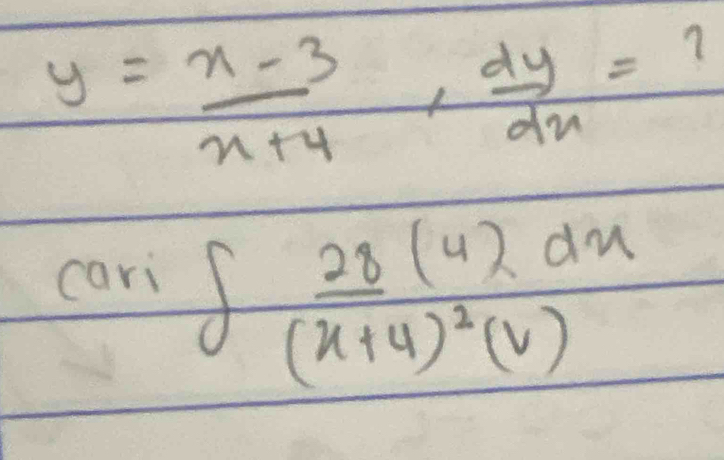 y = x - 3 / x + 4 , dy/dx = ?
cari ∫ 28 (u) dx / (x+4)² (v)